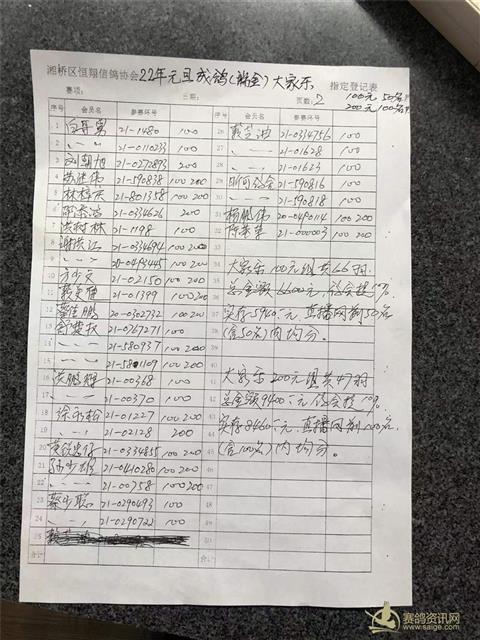 湘桥区恒翔信鸽协会 22年元旦成鸽(瑞金)大家乐 指定登记表
赛项: 日期: 页数: 2
100元 50名
200元 100名
序号 会员名 参赛环号
1 21-1480 100
2 〃 〃 21-011023 100
3 刘朝旭 21-0272893 200
4 苏佳伟 21-590838 100 200
5 21-801358 100 200
6 21-0334626 200
7 洪树林 21-1198 100
8 谢洪江 21-0334694 100 200
9 〃 〃 20-0493445 100 200
10 方少文 21-02150 100 200
11 21-01399 100 200
12 20-0302732 100 200
13 21-0767271 100
14 〃 〃 21-580937 100 200
15 〃 〃 21-5801109 100 200
16 洪鹏辉 21-00368 100
17 〃 〃 21-00370 100
18 21-01227 100 200
19 〃 〃 21-02128 200
20 21-0334855 100 200
21 孙少雄 21-0410280 100 200
22 〃 〃 21-00758 100 200
23 蔡少聪 21-0290493 100
24 〃 〃 21-0290722 100
25
合计
序号 会员名 参赛环号
26 21-0334756 100
27 〃 〃 21-01628 100
28 〃 〃 21-01623 100
29 21-590816 100
30 〃 〃 21-590818 100
31 杨鹏伟 20-0490114 100 200
32 21-000003 100 200
33
34 大家乐100元组共66羽
35
36 总金额6600元,协会提10%
37 实存5940元,直播网前50名
38 (含50名)内均分。
39
40
41 大家乐200元组共47羽
42 总金额9400元 协会提10%
43
44 实存8460元,直播网前100名
45 (含100名)内均分。
46
47
48
49
50
合计
赛鸽资讯网
www.saige.com